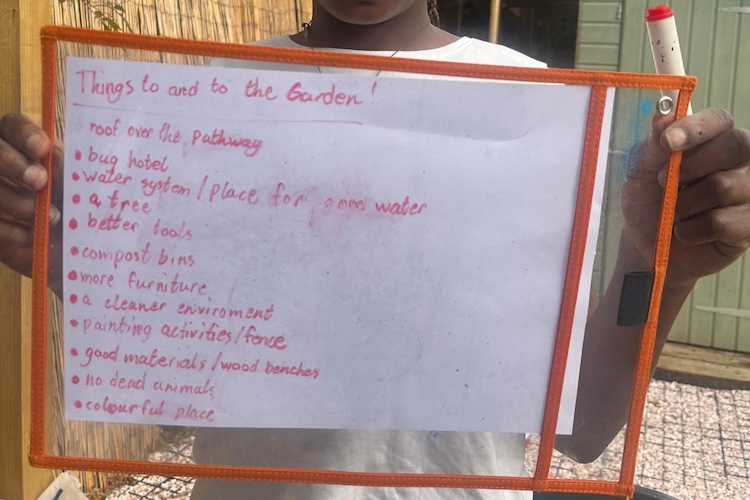 Things to and to the Garden!
roof over the pathway
• bug hotel
• water system/place for good water
• a tree
• better tools
• compost bins
• more furniture
• a cleaner enviroment
• painting activities/fence
• good materials/wood benches
• no dead animals
• colourful place